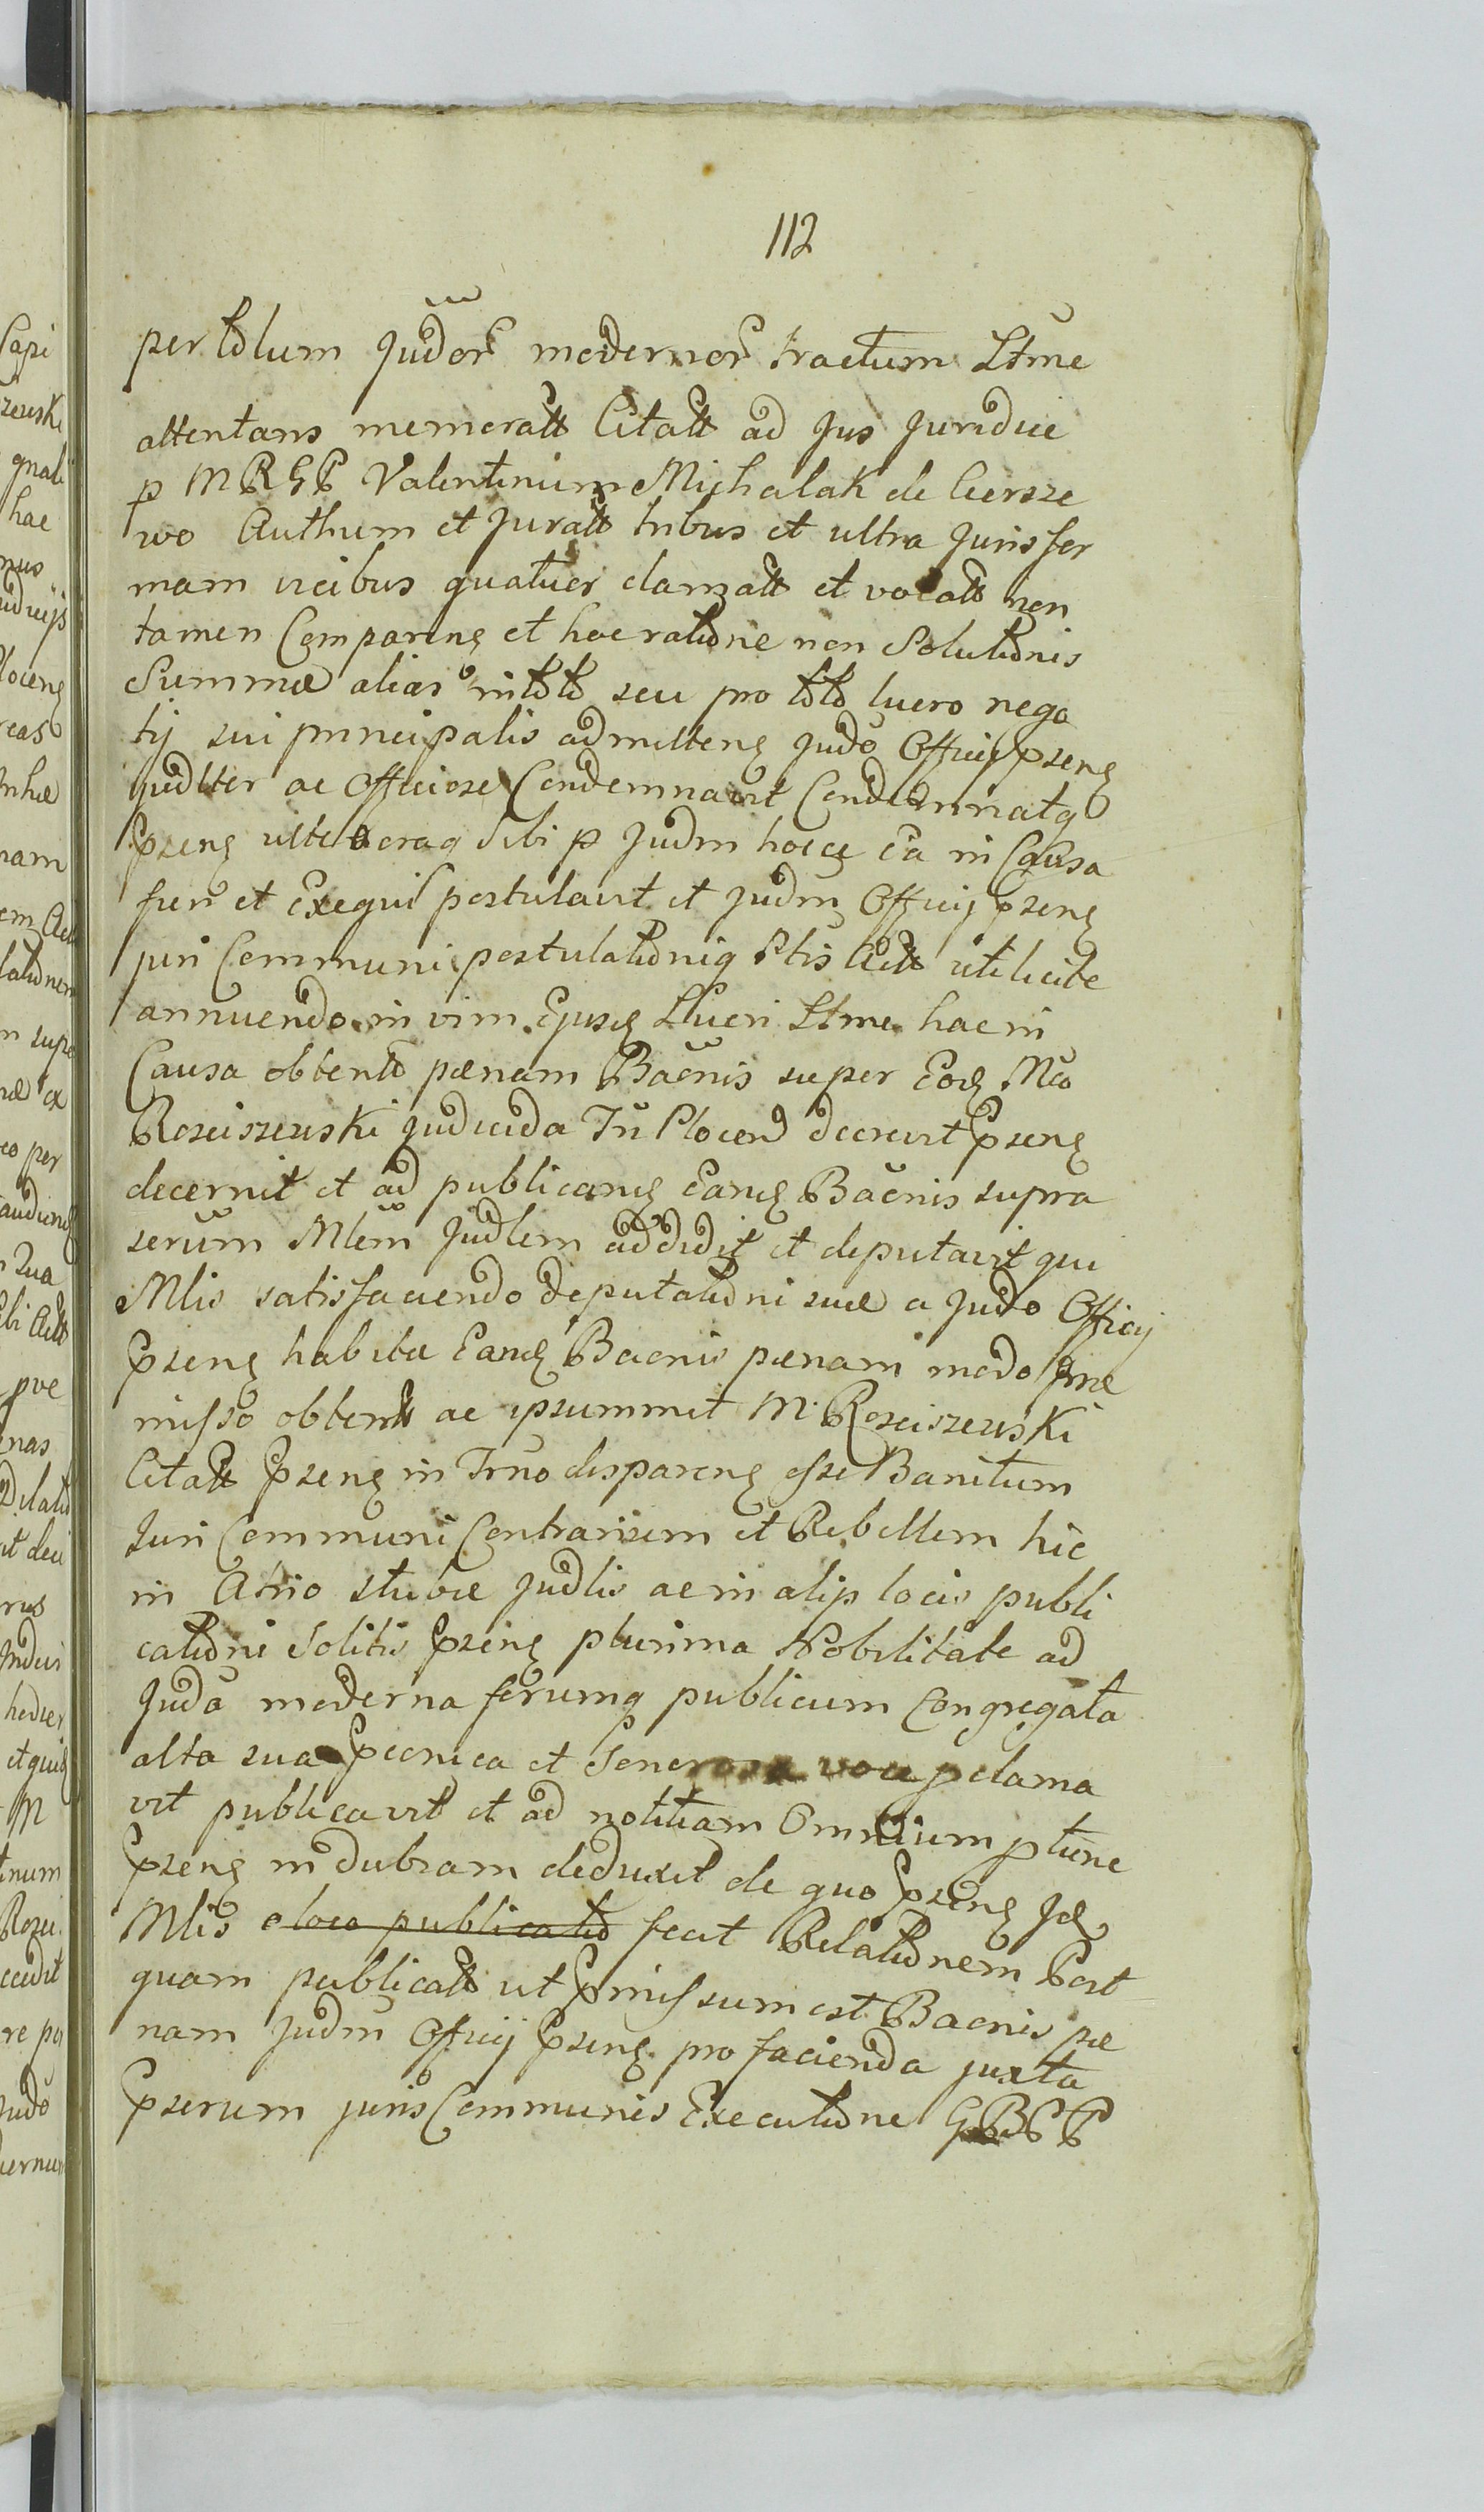 112
per totum Judōr modernor tractum Ltme
attentans memoratt Citatt ad Jus Juridice
p M R G P Valentinum Michalak de Ciersze
wo Authum et Juratt tribus et ultra Juris for
mam vicibus quatuor clamatt et vocatt non
tamen Comparenę et hac rat͠ōne non Solut͠ōnis
Summæ alias in toto seu pro toto lucro nego
tij sui principalis admittenę Judō Officij pzenę
Judlter ac Officiose Condemnavit Condemnatq
pzenę ulteraq Sibi p Judm hocce Ea in Causa
fieri et Exequi postulavit et Judm Officij pzenę
juri Communi postulat͠ōniq Ptis Actt uti licite
annuendo in vim Ejusdę Lucri Ltme hac in
Causa obtentt pænam Bac͠nis super Eodę Mco
Rosciszewski Judicida Tn Plocen decrevit pzenę
decernit et ad publicandę Eandę Bac͠nis supra
serum Mlem Judlem addidit et deputavit qui
Mlis satisfaciendo deputat͠ōni suæ a Judo Officij
pzenę habitæ Eandę Bacnis pænam modo præ
misso obtentt ac ipsummet M. Rosciszewski
Citatt pzenę in Trno disparenę esse Banitum
Juri Communi Contrarium et Rebellem hic
in Atrio stubæ Judlis ac in alijs locis publi
cat͠ōni Solitis pzenę plurima Nobilitate ad
Juda moderna forumq publicum Congregata
alta sua pconica et Sonorosa voce pclama
vit publicavit et ad notitiam Omnium ptunc
pzenę in dubiam deduxit de quo pzenę Jdę
Mlis e loco publicato fecit Relat͠ōnem Post
quam publicatt ut pmissum est Bacnis pæ
nam Judm Officij pzenę pro facienda juxta
pserum juris Communis Execut͠ōne G B C P